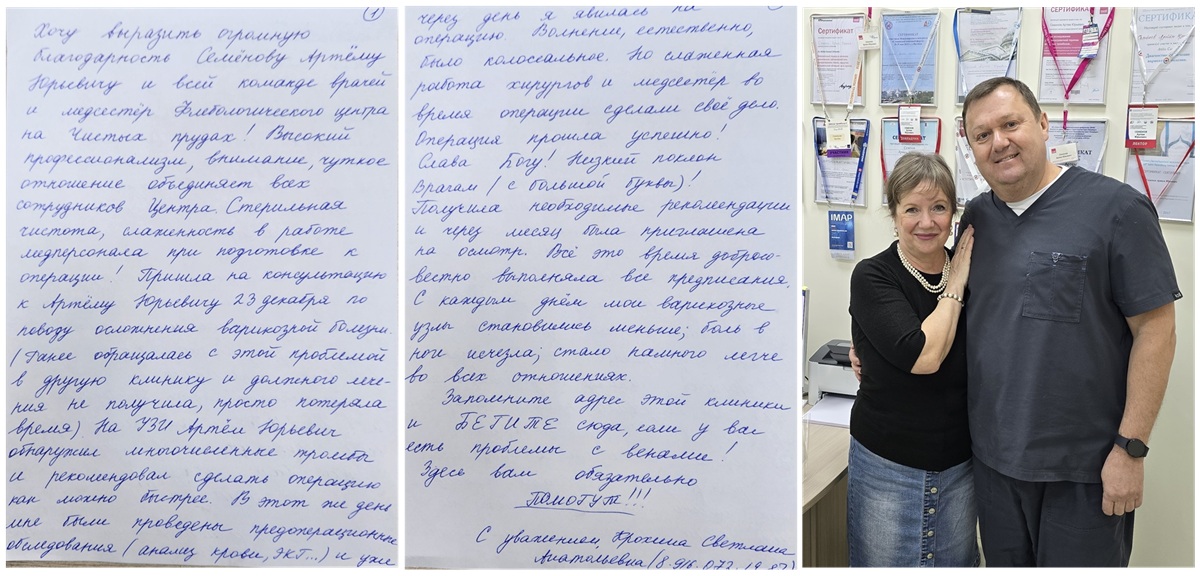 1
Хочу выразить огромную
благодарность Семёнову Артёму
Юрьевичу и всей команде врачей
и медсестёр Флебологического центра
на Чистых прудах! Высокий
профессионализм, внимание, чуткое
отношение объединяет всех
сотрудников Центра. Стерильная
чистота, слаженность в работе
медперсонала при подготовке к
операции! Пришла на консультацию
к Артёму Юрьевичу 23 декабря по
поводу осложнения варикозной болезни.
(Ранее обращалась с этой проблемой
в другую клинику и должного лече-
ния не получила, просто потеряла
время). На УЗИ Артём Юрьевич
обнаружил многочисленные тромбы
и рекомендовал сделать операцию
как можно быстрее. В этот же день
мне были проведены предоперационные
обследования (анализ крови, ЭКГ...) и уже
через день я явилась на
операцию. Волнение, естественно,
было колоссальное. Но слаженная
работа хирургов и медсестёр во
время операции сделали своё дело.
Операция прошла успешно!
Слава Богу! Низкий поклон
Врачам (с большой буквы)!
Получила необходимые рекомендации
и через месяц была приглашена
на осмотр. Всё это время добросо-
вестно выполняла все предписания.
С каждым днём мои варикозные
узлы становились меньше; боль в
ноге исчезла; стало намного легче
во всех отношениях.
Запомните адрес этой клиники
и БЕГИТЕ сюда, коли у вас
есть проблемы с венами!
Здесь вам обязательно
ПОМОГУТ!!!
С уважением, Крохина Светлана
Анатольевна (8-916-073-
СЕРТИФИКАТ
СЕРТИФИКАТ
СЕРТИФИКАТ
IMAP